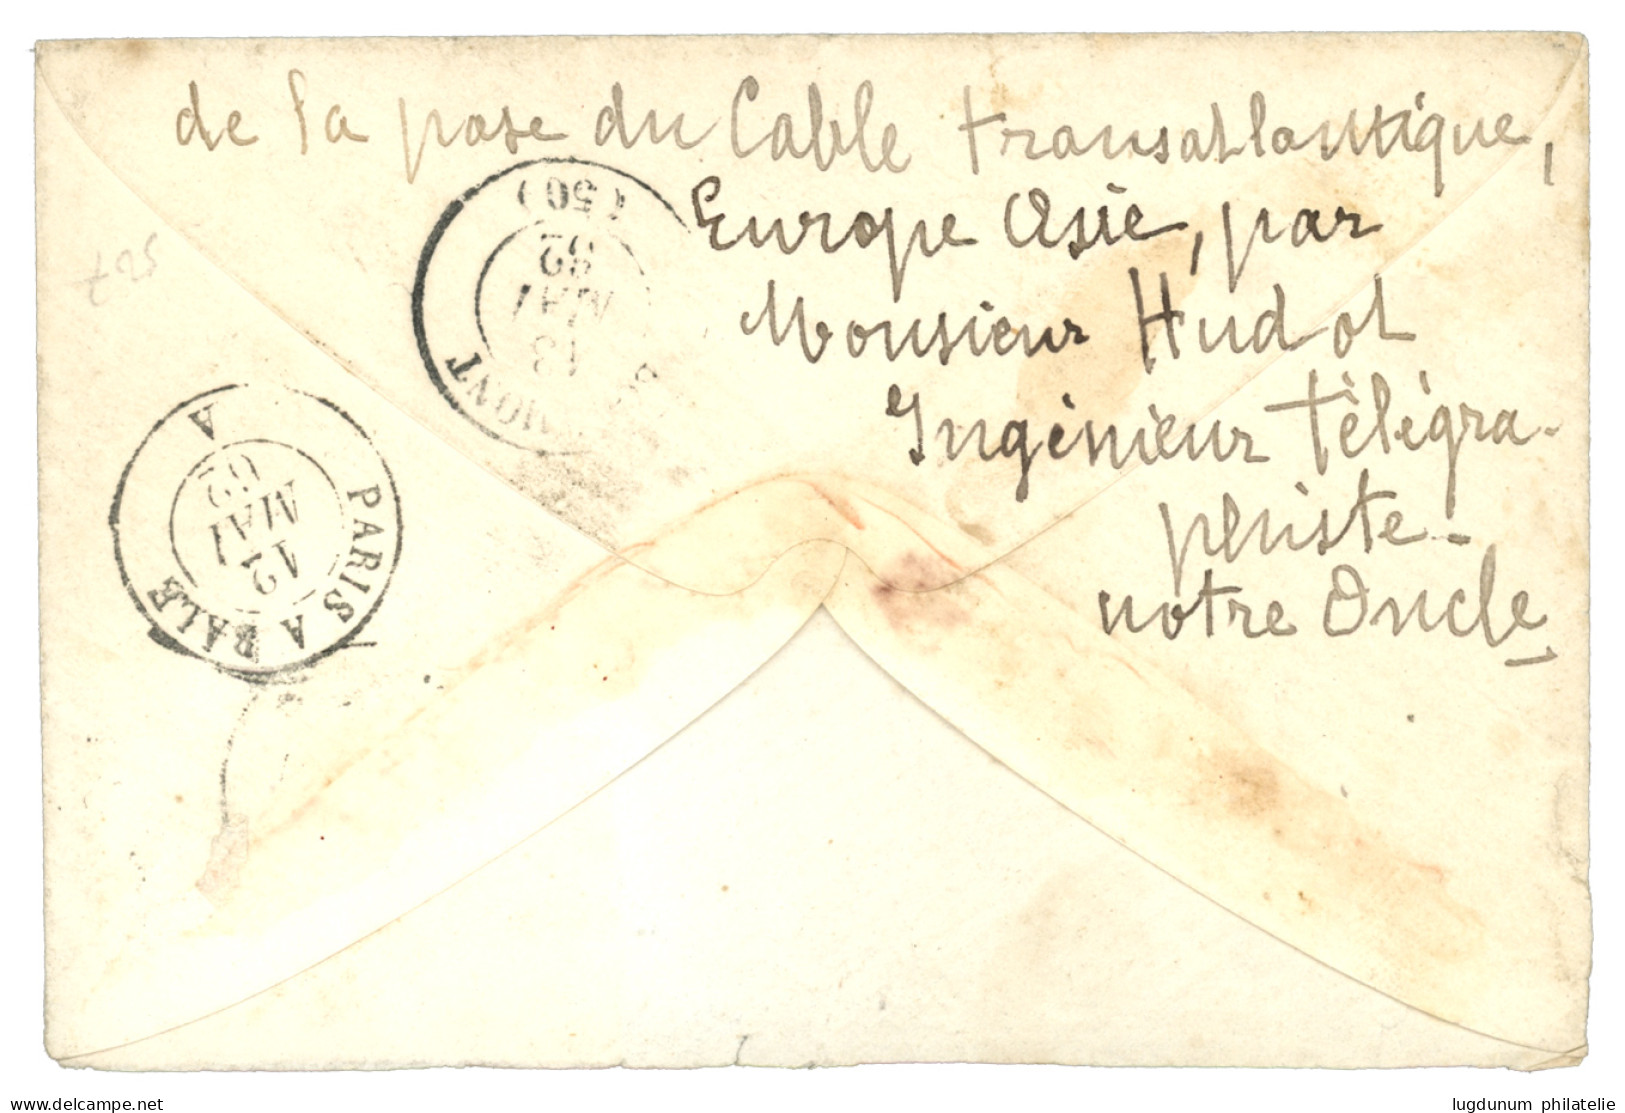 de la pose du Cable transatlantique,
Europe Asie, par
Monsieur Hudot
Ingénieur télégra-
phiste-
notre Oncle
(50)
82
MAI
13
MONT
A
62
MAI
12
PARIS A BALE
t25
www.delcampe.net
lugdunum philatelie